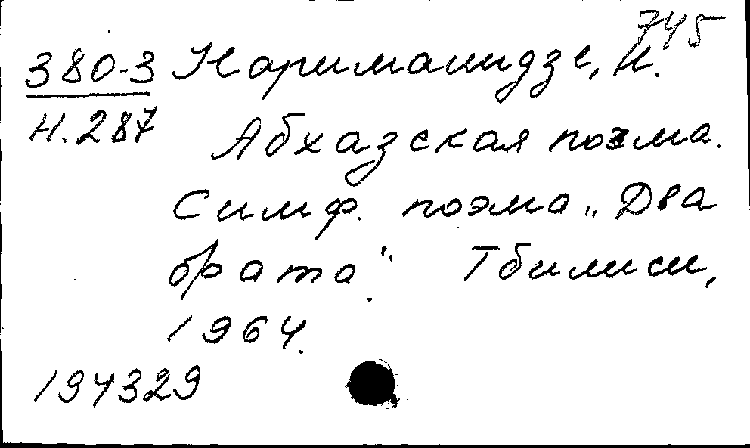 745
380-3 Нариманидзе, Н.
Н.287 Абхазская поэма.
Симф. поэма „Два
брата". Тбилиси,
1964.
194329